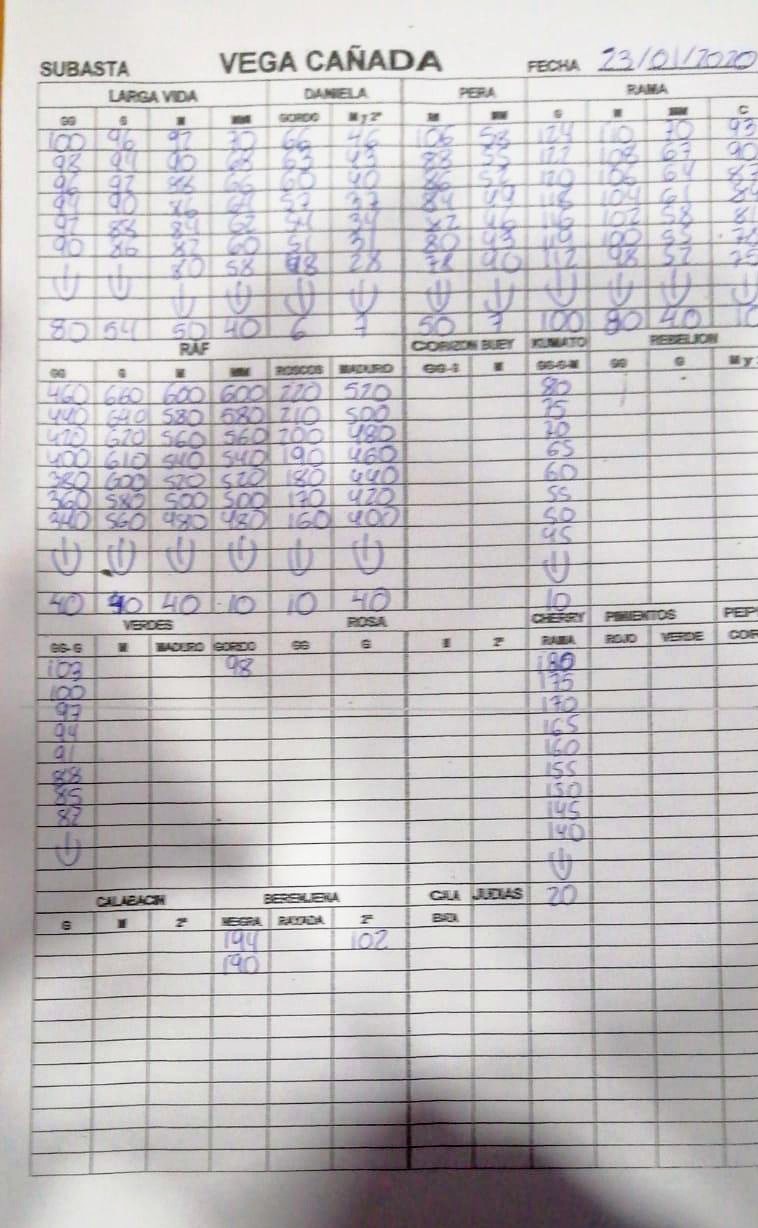 SUBASTA VEGA CAÑADA FECHA 23/01/2020
LARGA VIDA DANIELA PERA RAMA
GG G M MM GORDO M y 2ª M MM G M MM C
100 96 92 70 66 46 106 58 124 110 70 93
98 94 90 68 63 43 88 55 122 108 67 90
96 92 88 66 60 40 86 52 120 106 64 87
94 90 86 64 57 37 84 49 118 104 61 84
92 88 84 62 54 34 82 46 116 102 58 81
90 86 82 60 51 31 80 43 114 100 55 78
80 58 48 28 78 40 112 98 52 75
80 54 50 40 6 7 50 7 100 80 40 10
RAF CORAZON BUEY KUMATO REBELION
GG G M MM ROSCOS MADURO GG-G M GG-G-M GG G M y
460 660 600 600 220 520 80
440 640 580 580 210 500 75
420 620 560 560 200 480 70
400 610 540 540 190 460 65
380 600 520 520 180 440 60
360 580 500 500 170 420 55
340 560 480 480 160 400 50
45
40 90 40 10 10 40 10
VERDES ROSA CHERRY PIMIENTOS PEP
GG-G M MADURO GORDO GG G M 2ª RAMA ROJO VERDE COR
103 98 180
100 175
97 170
94 165
91 160
88 155
85 150
82 145
140
CALABACIN BERENJENA JUDIAS 20
G M 2ª NEGRA RAYADA 2ª
194 102
190